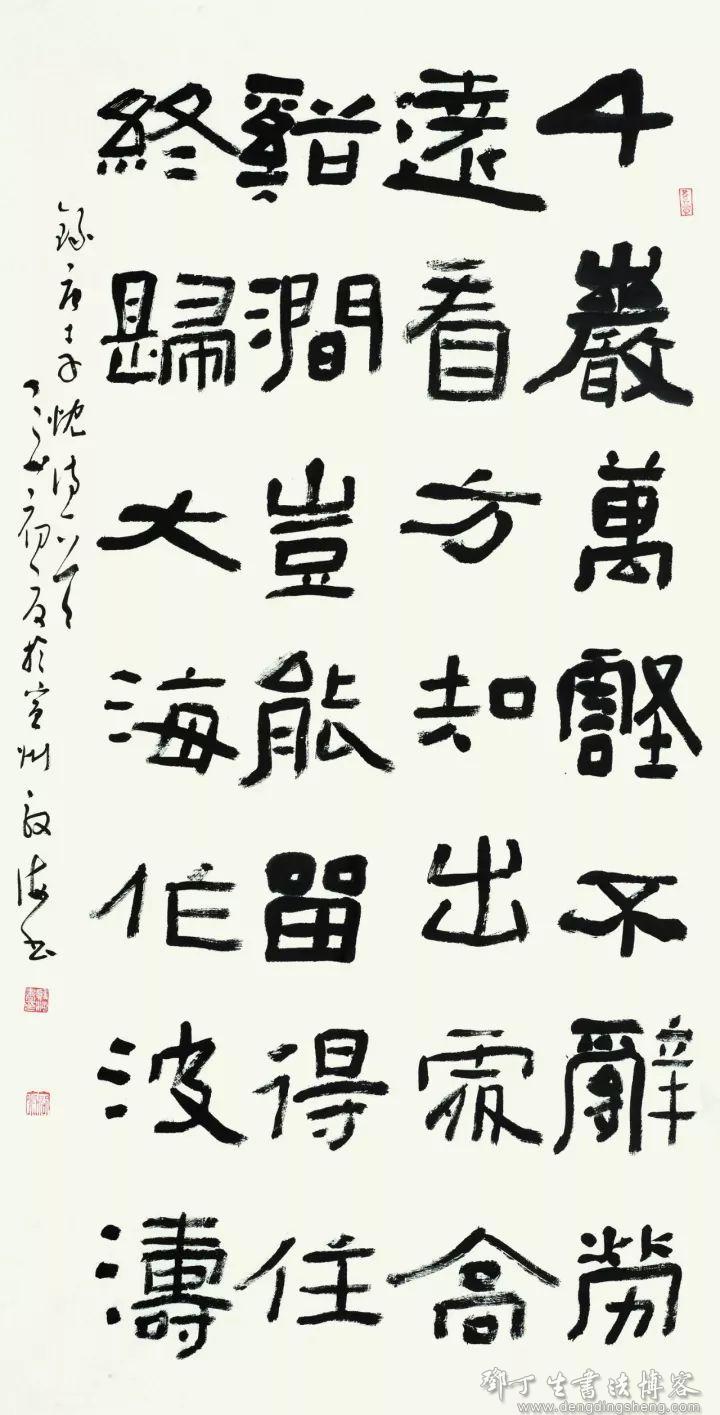 千巖萬壑不辭勞
遠看方知出處高
谿澗豈能留得住
終歸大海作波濤
錄唐李忱詩一首
初夏於宣州
鄧丁生書法博客
www.dengdingsheng.com